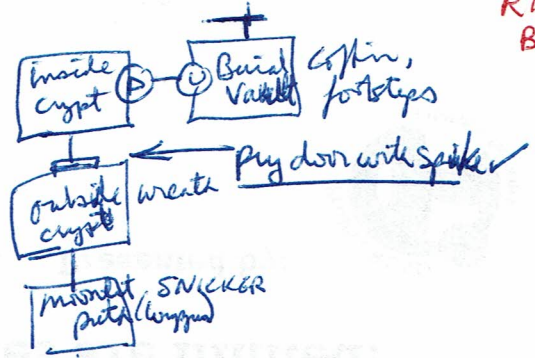 R
B
inside
crypt
D
U
Burial
Vault
coffin,
footsteps
pry door with spike ✓
outside
crypt
wreath
moonlit
path
SNICKER